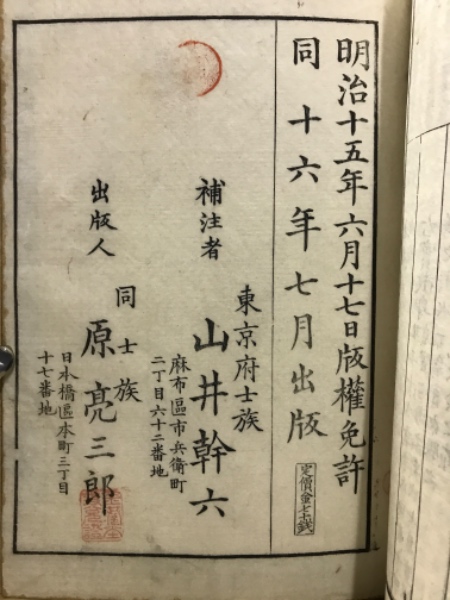 明治十五年六月十七日版權免許
同十六年七月出版
定價金七十錢
東京府士族
補注者 山井幹六
麻布區市兵衞町
二丁目六十二番地
同士族
出版人 原亮三郎
日本橋區本町三丁目
十七番地